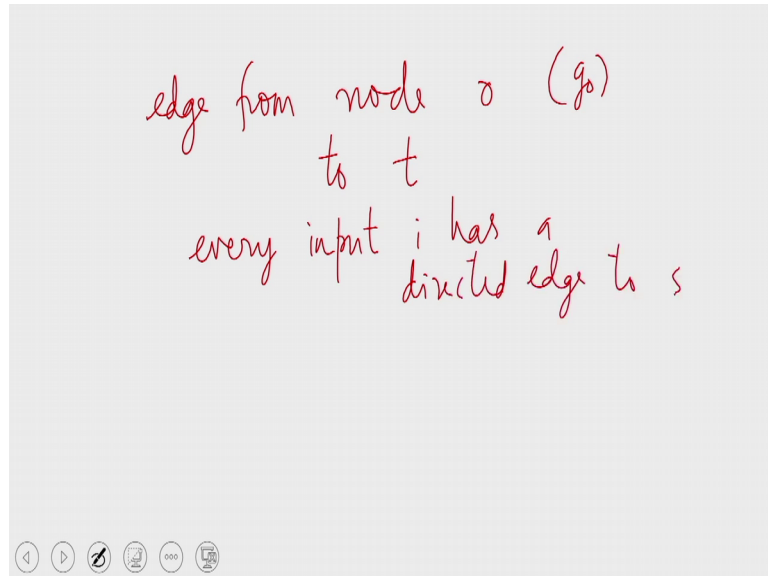 edge from node o (g₀)
to t
every input i has a
directed edge to s